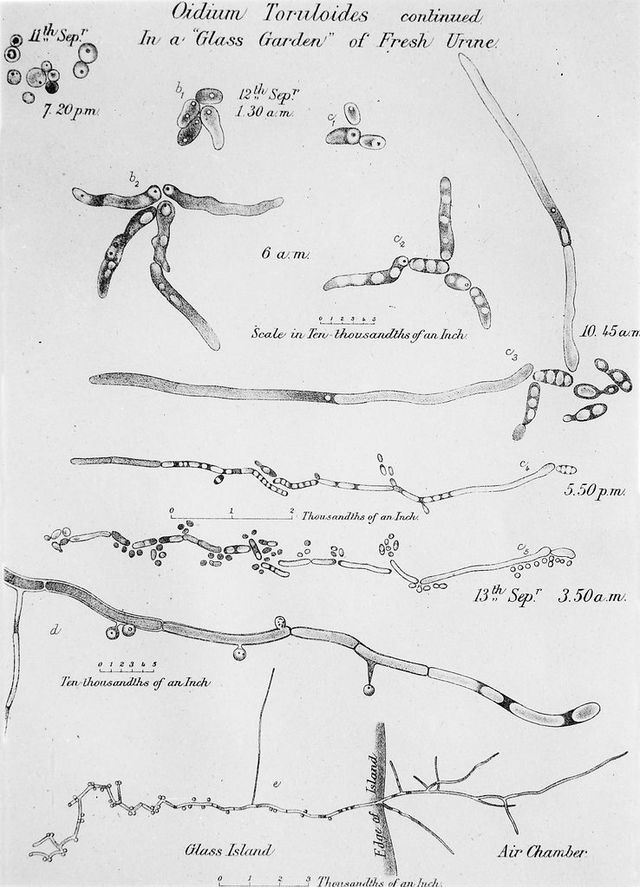 Oidium Toruloides continued
In a "Glass Garden" of Fresh Urine.
11th Sepr
7.20 p.m.
b1
12th Sepr
1.30 a.m.
c1
b2
6 a.m.
c2
0 1 2 3 4 5
Scale in Ten-thousandths of an Inch.
10.45 a.m
c3
c4
5.50 p.m.
0 1 2 Thousandths of an Inch.
c5
13th Sepr 3.50 a.m.
d
0 1 2 3 4 5
Ten-thousandths of an Inch
e
Edge of Island
Glass Island
Air Chamber
0 1 2 3 Thousandths of an Inch.